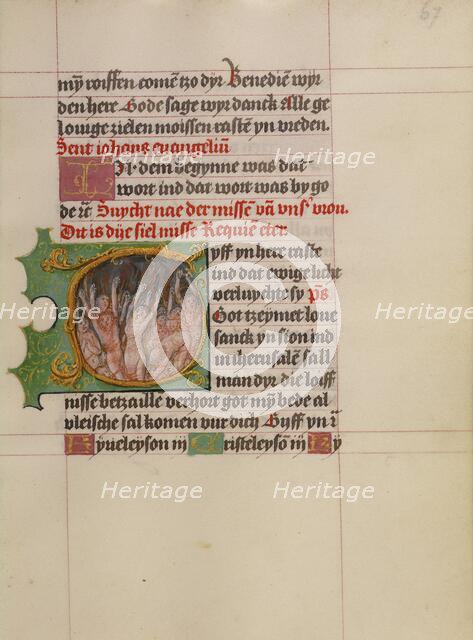 67
my roiffen comē tzo dyr Benediē wyr
den here Gode sage wyr danck Alle ge
louige zielen moissen rastē yn vreden.
Sent iohans euangeliū
In dem begynne was dat
wort ind dat wort was by go
de rē Suycht nae der missē vā vnsˀ vrou.
Dit is dye siel misse Requiē eter
Gyff yn here raste
ind dat ewige lucht
verluychte sy ps
Got tzeymet loue
sanck yn sion ind
in iherusalē sall
man dyr die loiff
nisse betzaille verhort got my bede al
vleische sal komen vur dich Gyff yn rē
Kyueleyson iij Cristeleysō iij Ky
Heritage Heritage
Heritage Heritage
Heritage Heritage